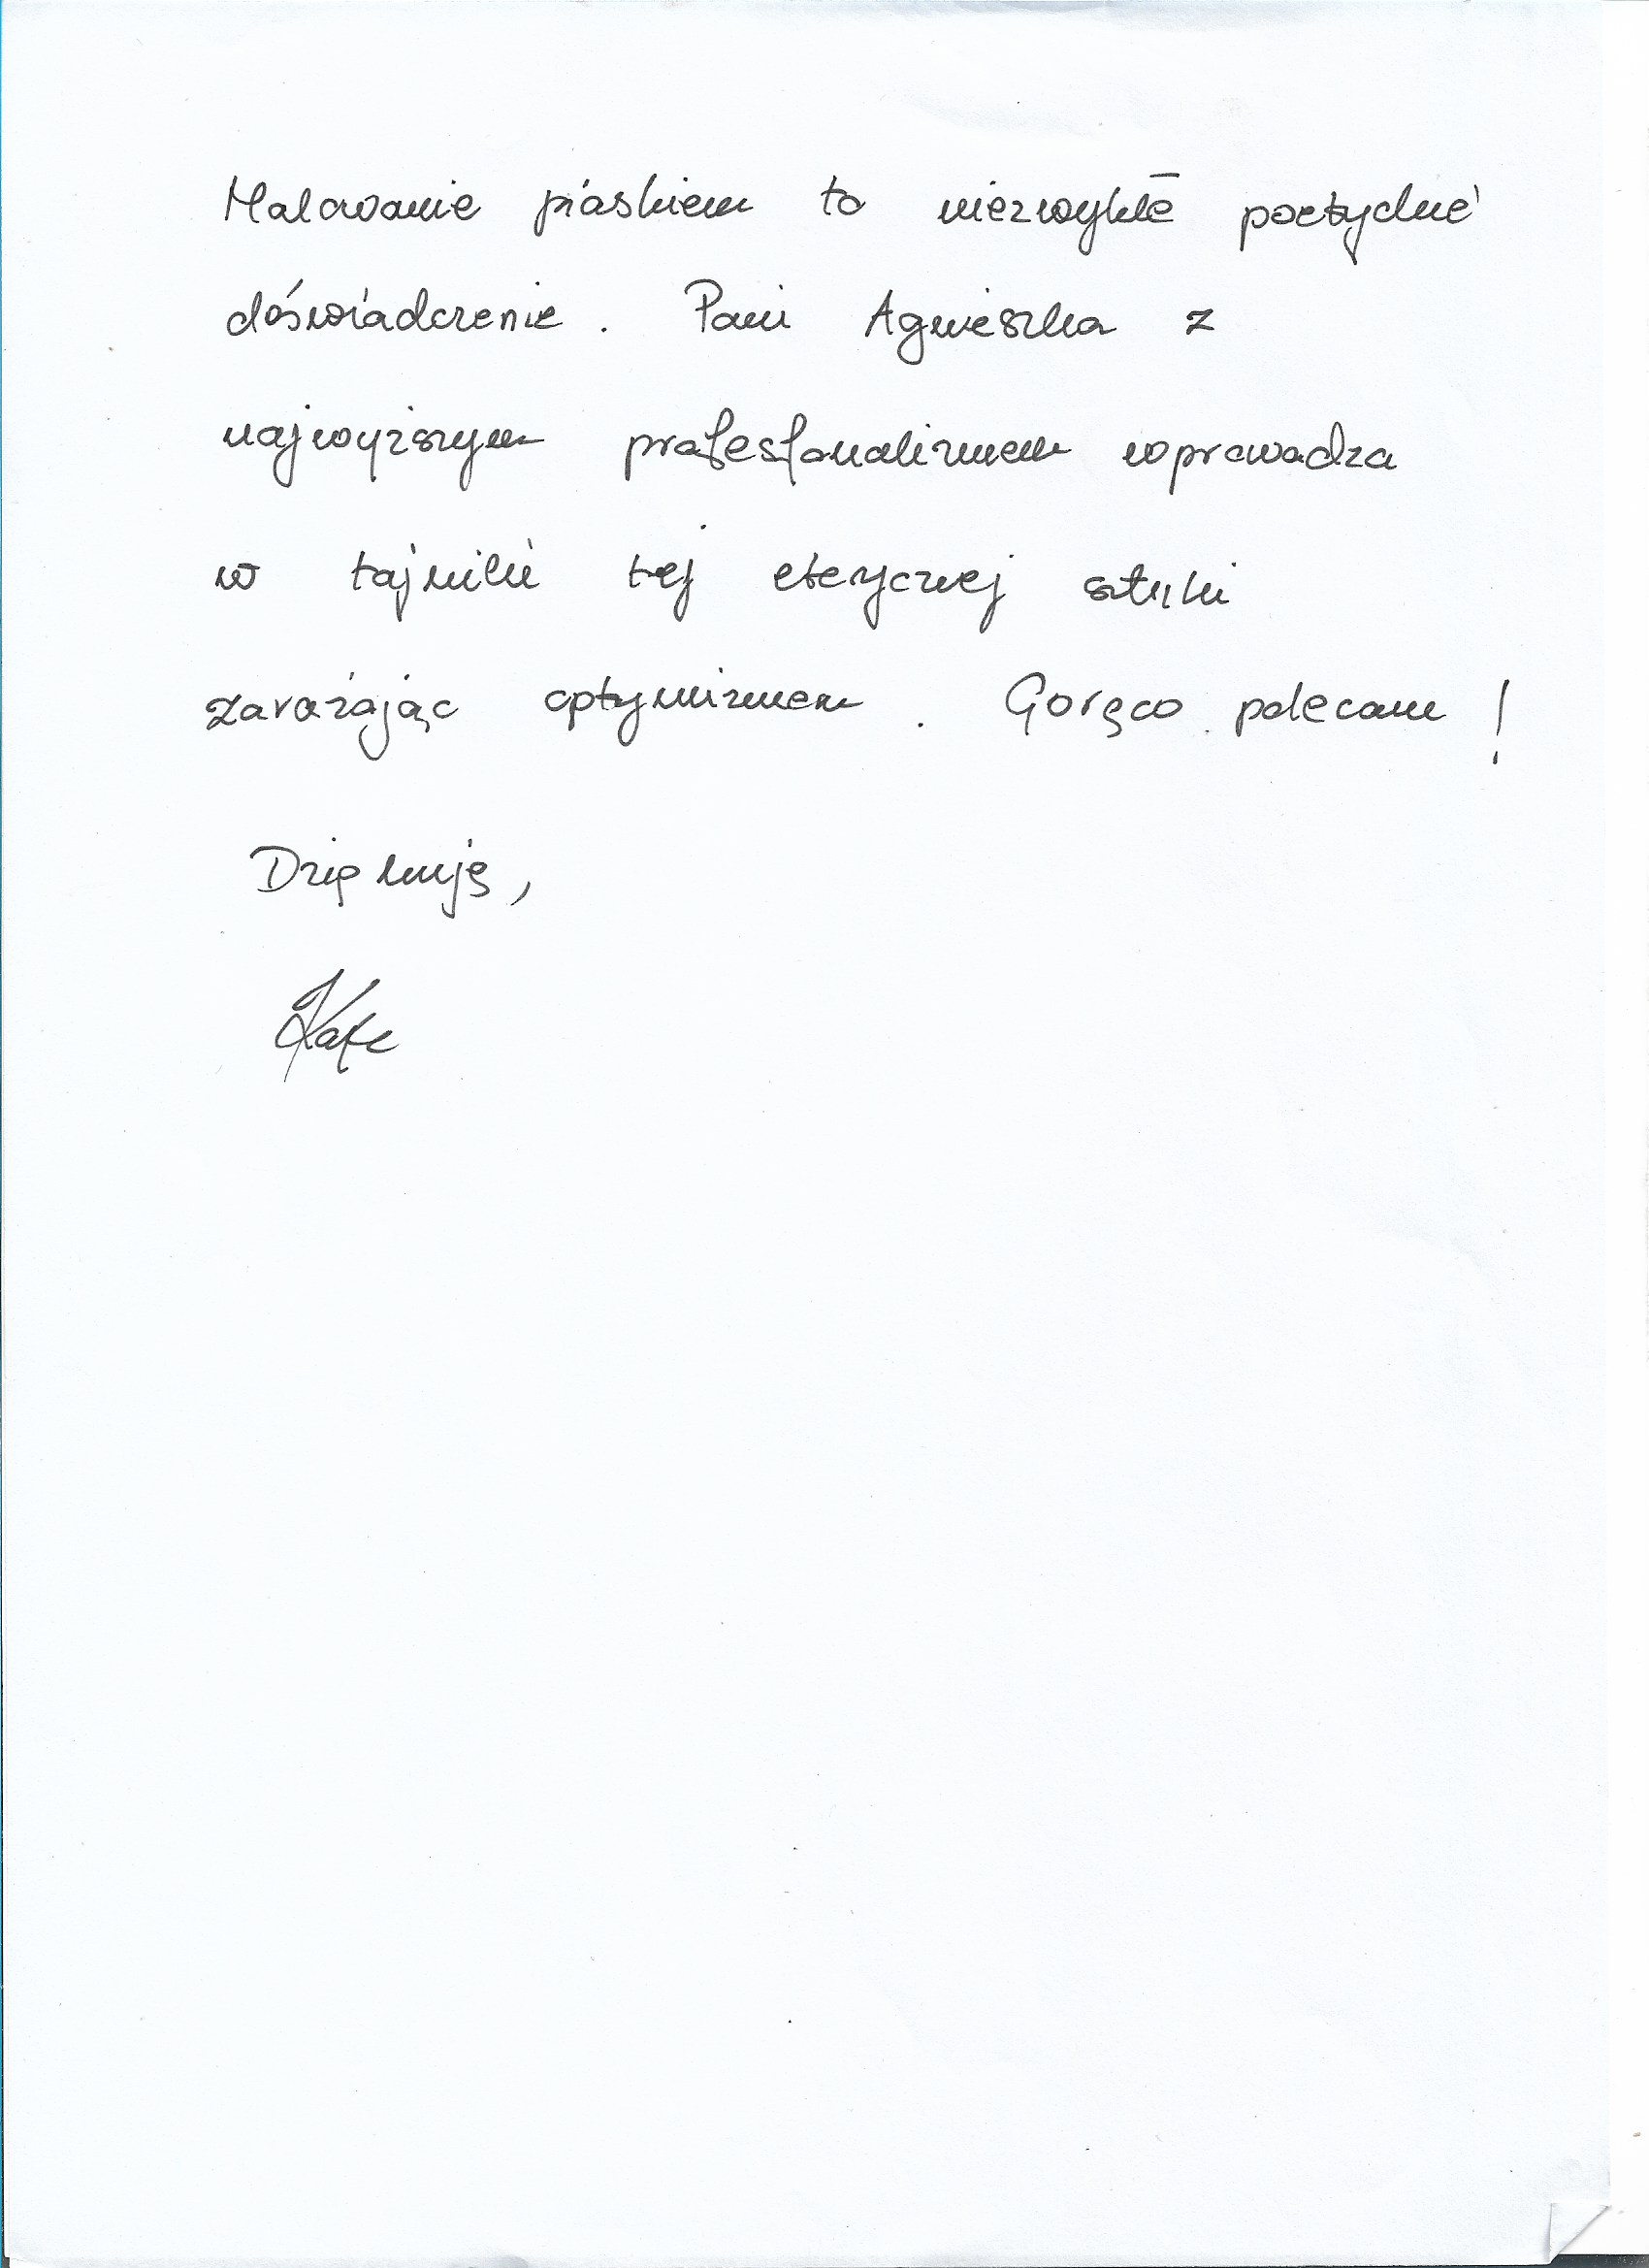 Malowanie piaskiem to niezwykłe poetyckie
doświadczenie. Pani Agnieszka z
najwyższym profesjonalizmem wprowadza
w tajniki tej eterycznej sztuki
zarażając optymizmem. Gorąco polecam!
Dziękuję,
Kate